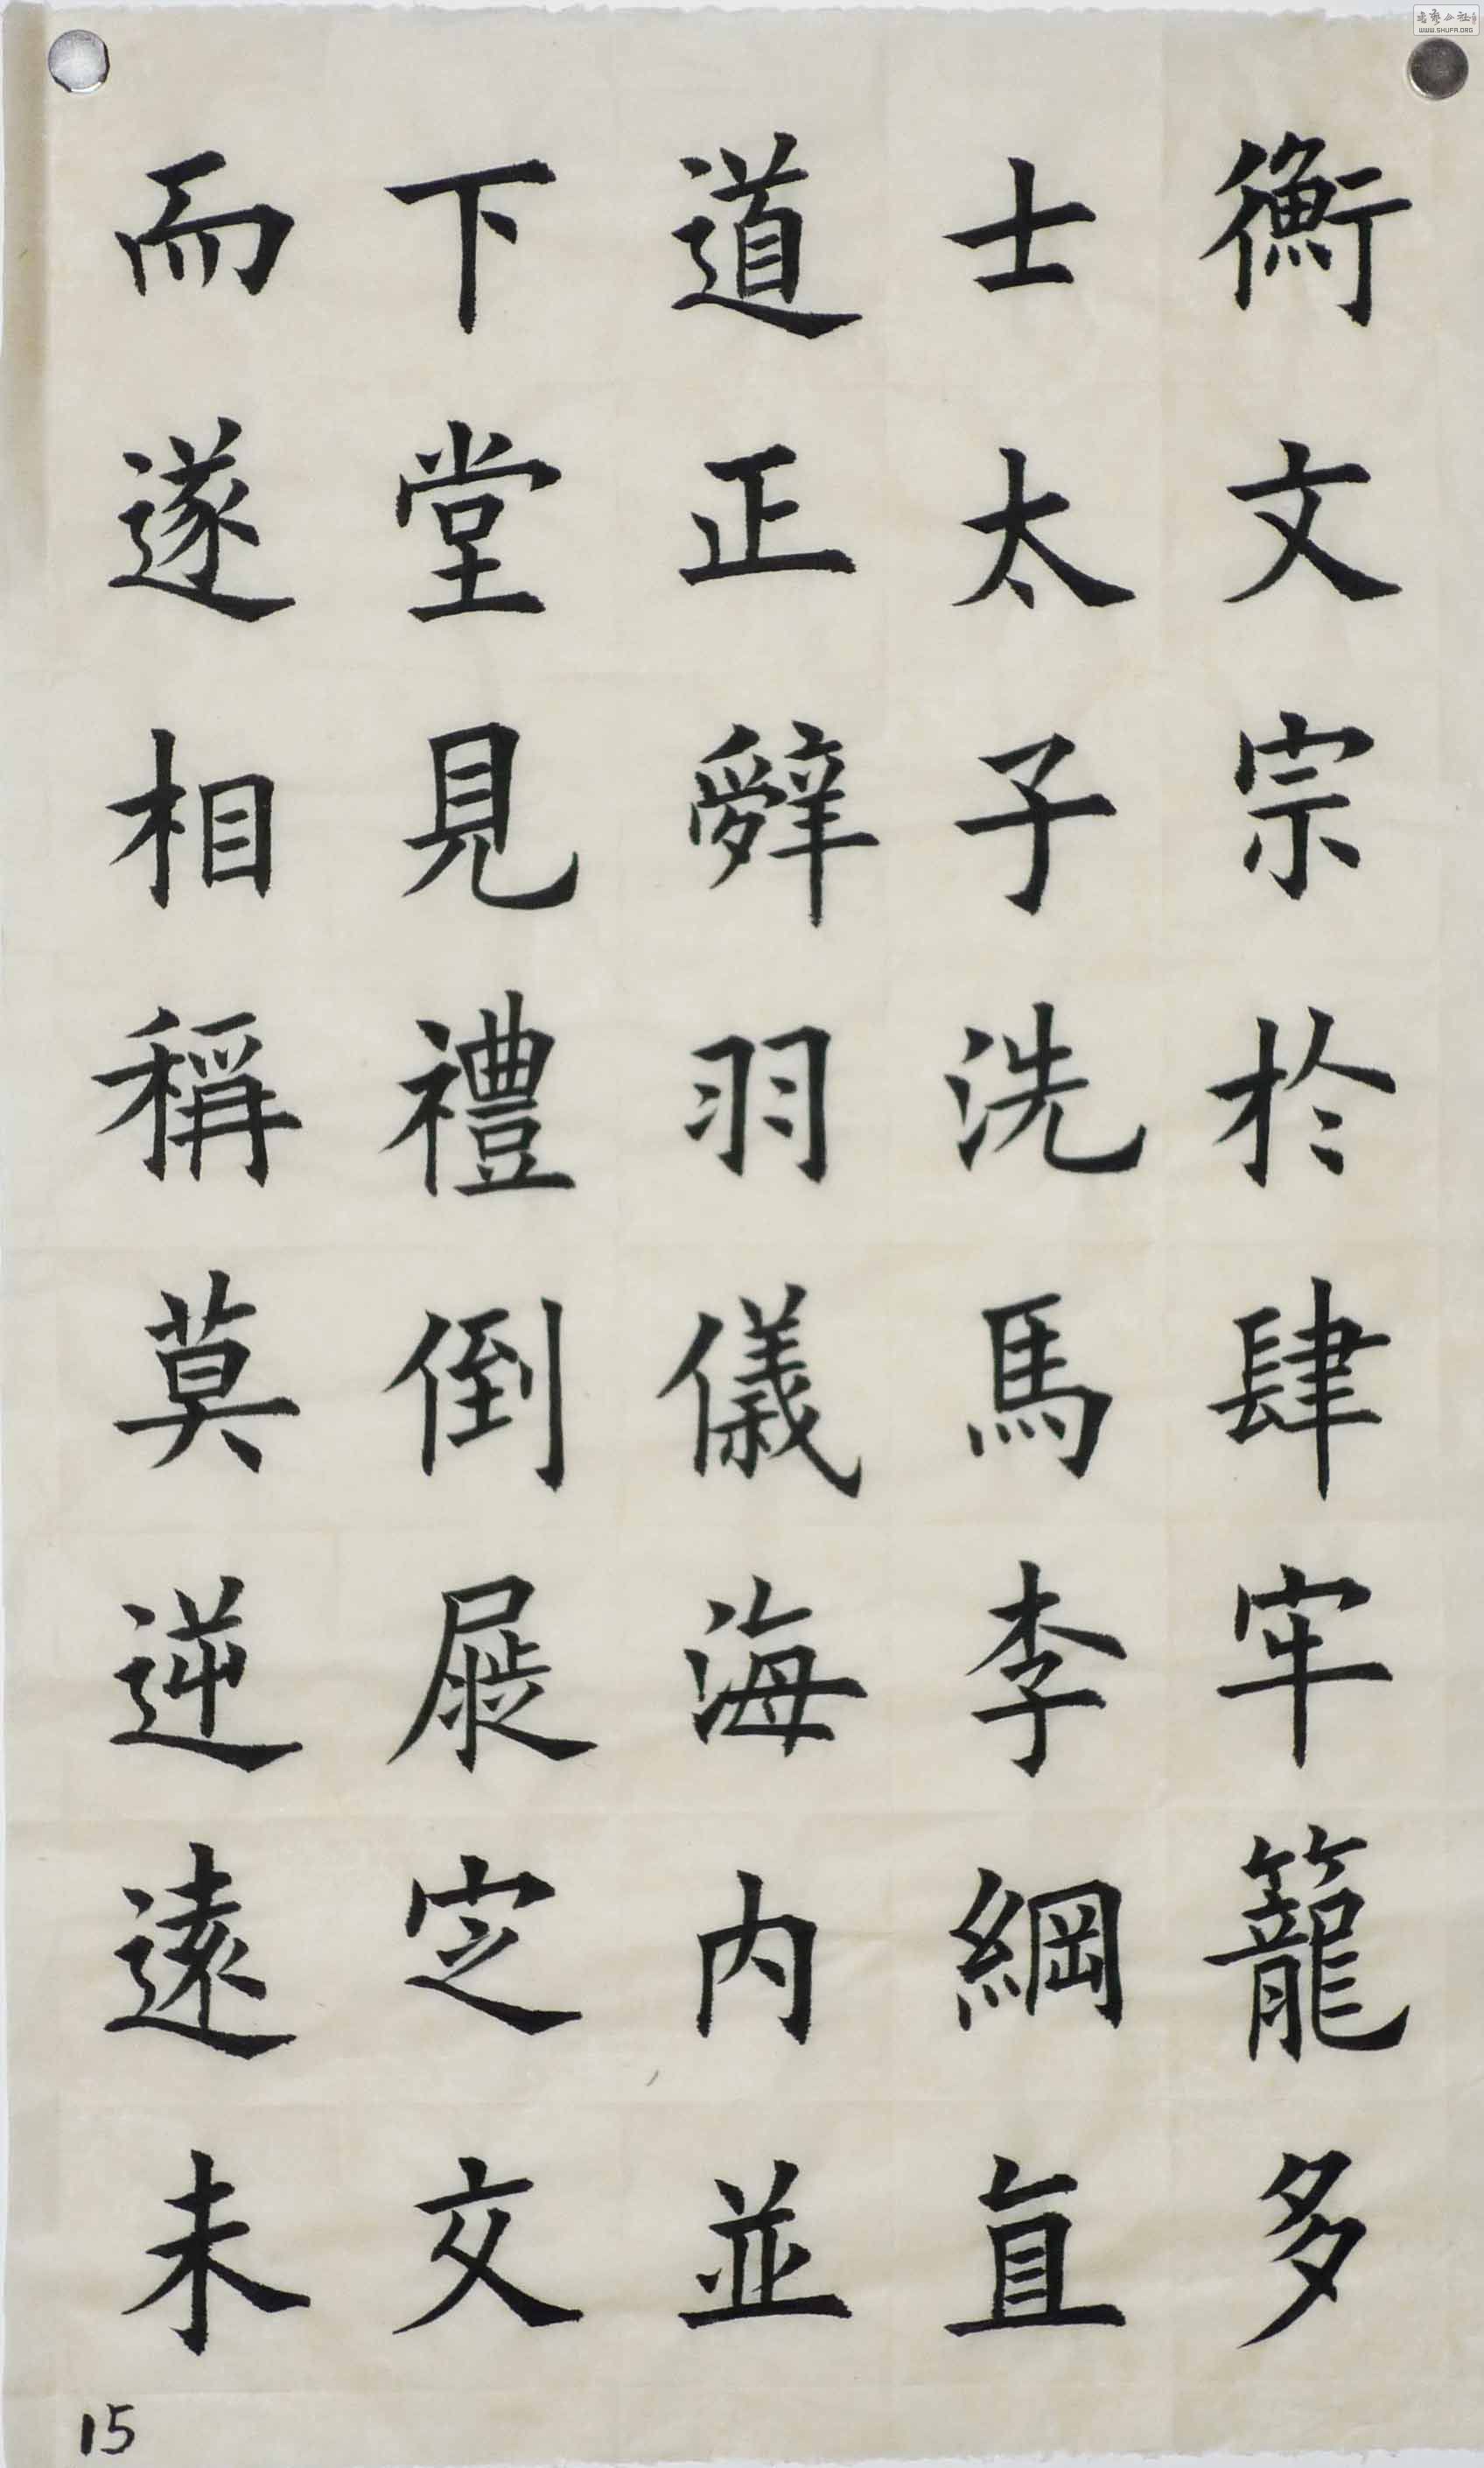 衡文宗於肆牢籠多
士太子洗馬李綱直
道正辭羽儀海内並
下堂見禮倒屣定交
而遂相稱莫逆遠未
15
WWW.SHUFA.ORG